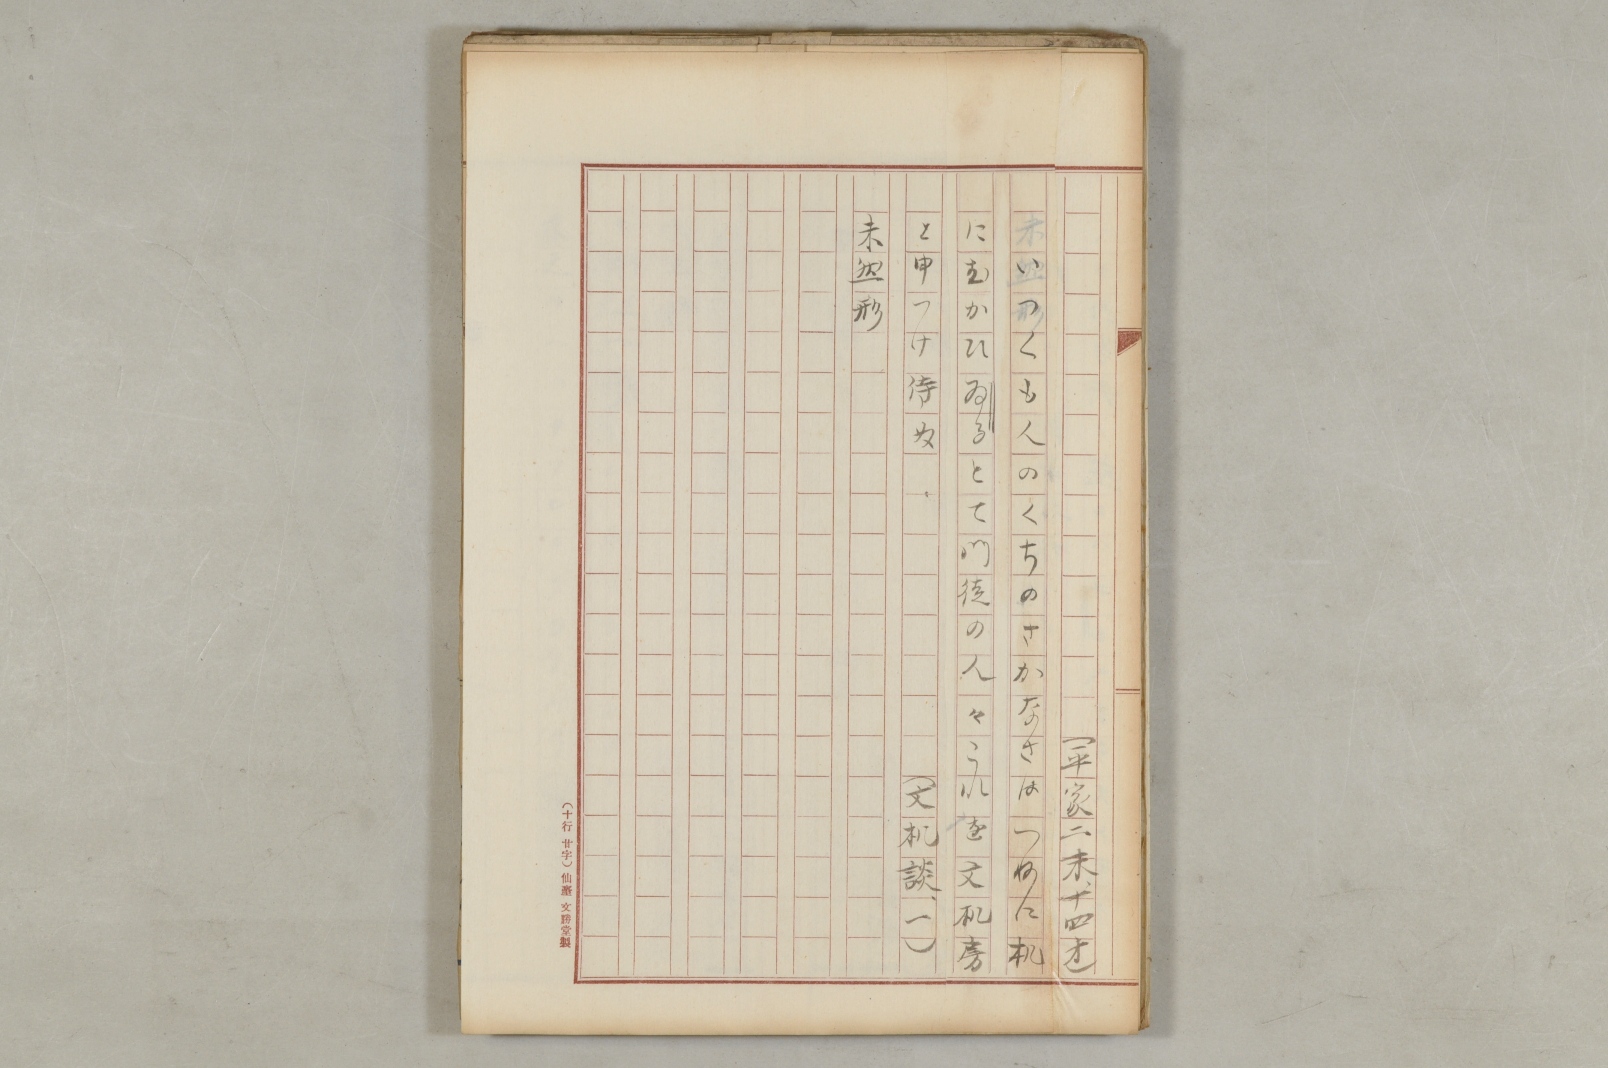 (平家二末、十四オ)
いつくも人のくちのさかなさはつねに机
にむかひゐるとて門徒の人々これを文机房
と申つけ侍ぬ
(文机談、一)
未然形
(十行 廿字)仙臺 文勝堂製